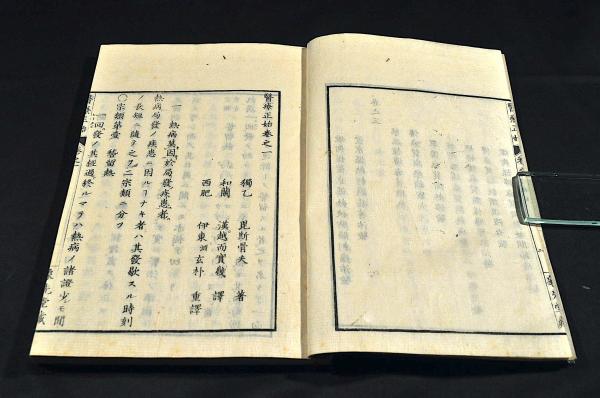 醫療正始卷之一
獨乙 毘斯骨夫 著
和蘭 漢越而實幾 譯
西肥 伊東淵玄朴 重譯
一 熱病莫因於局發疾患者
熱病局發ノ疾患ニ因ルコナキ者ハ其發歇スル時刻
ノ長短ニ隨テ之ヲ二宗類ニ分ツ
○宗類第壹 稽留熱
一回發ノ其經過終ルマテハ熱病ノ諸證少シモ間
醫療正始